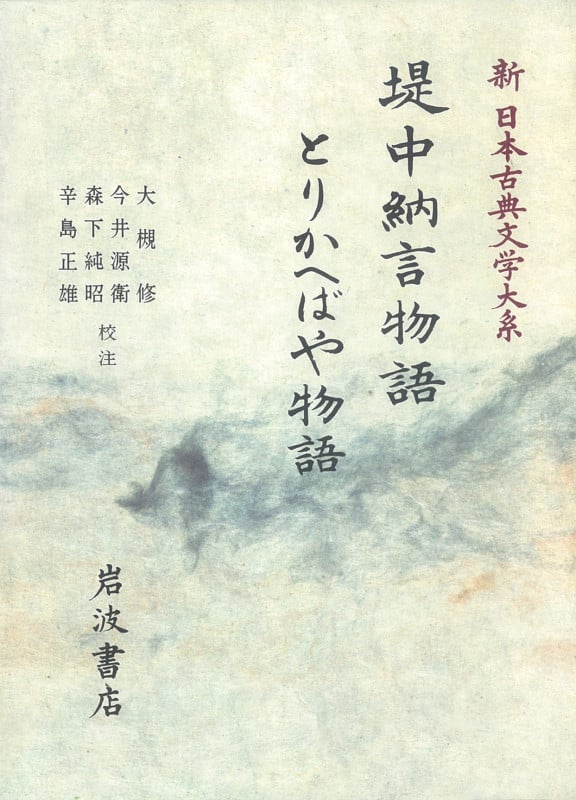 新 日本古典文学大系
堤中納言物語
とりかへばや物語
大槻修
今井源衛
森下純昭
辛島正雄
校注
岩波書店